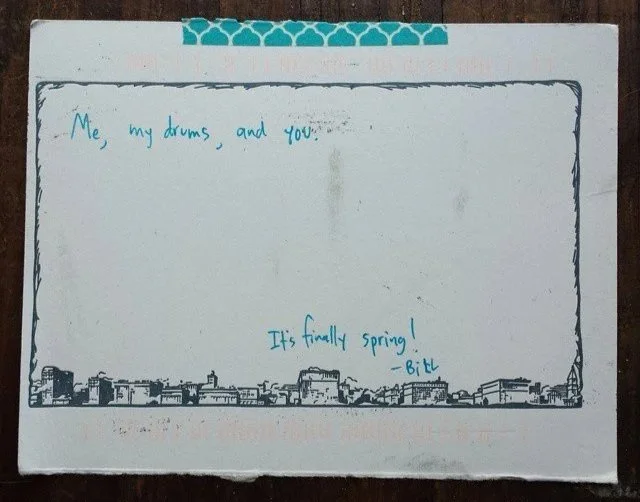 Me, my drums, and you.
It's finally spring!